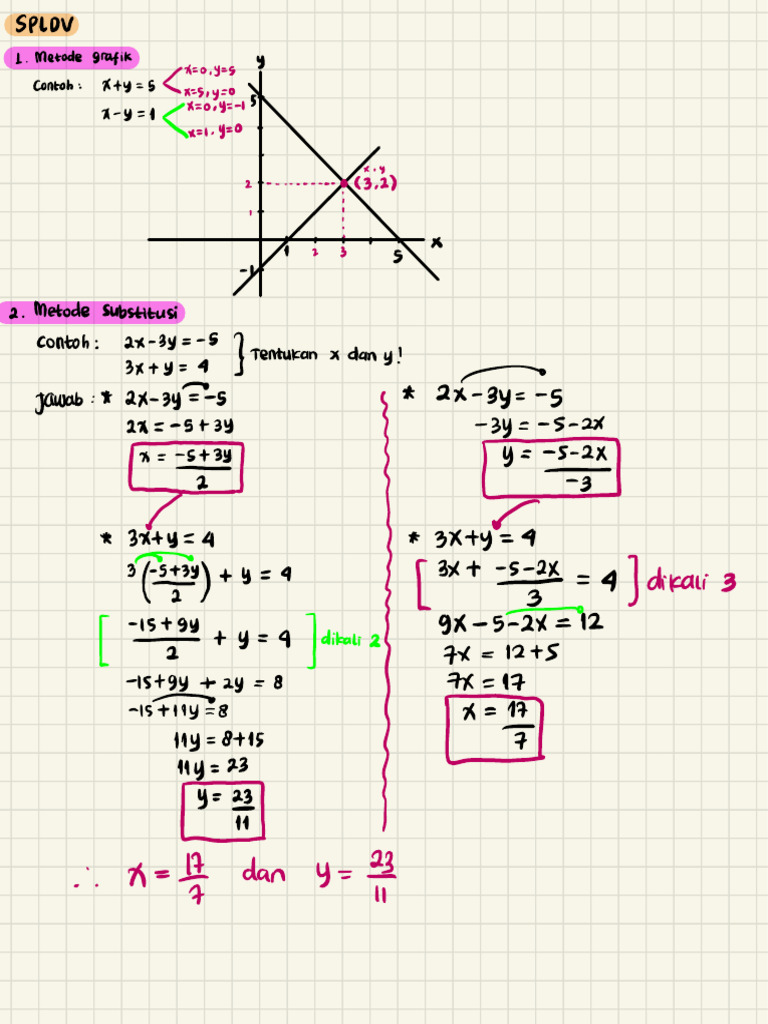 SPLDV
1. Metode grafik
Contoh: x+y=5
x=0, y=5
x=5, y=0
x-y=1
x=0, y=-1
x=1, y=0
y
5
2
1
-1
1
2
3
5
x
x . y
(3,2)
2. Metode Substitusi
Contoh: 2x-3y=-5
3x+y=4
Tentukan x dan y!
Jawab: * 2x-3y=-5
2x=-5+3y
x = -5+3y/2
* 3x+y=4
3(-5+3y/2)+y=4
[-15+9y/2+y=4] dikali 2
-15+9y+2y=8
-15+11y=8
11y=8+15
11y=23
y=23/11
* 2x-3y=-5
-3y=-5-2x
y=-5-2x/-3
* 3x+y=4
[3x+-5-2x/3=4] dikali 3
9x-5-2x=12
7x=12+5
7x=17
x=17/7
∴ x=17/7 dan y=23/11